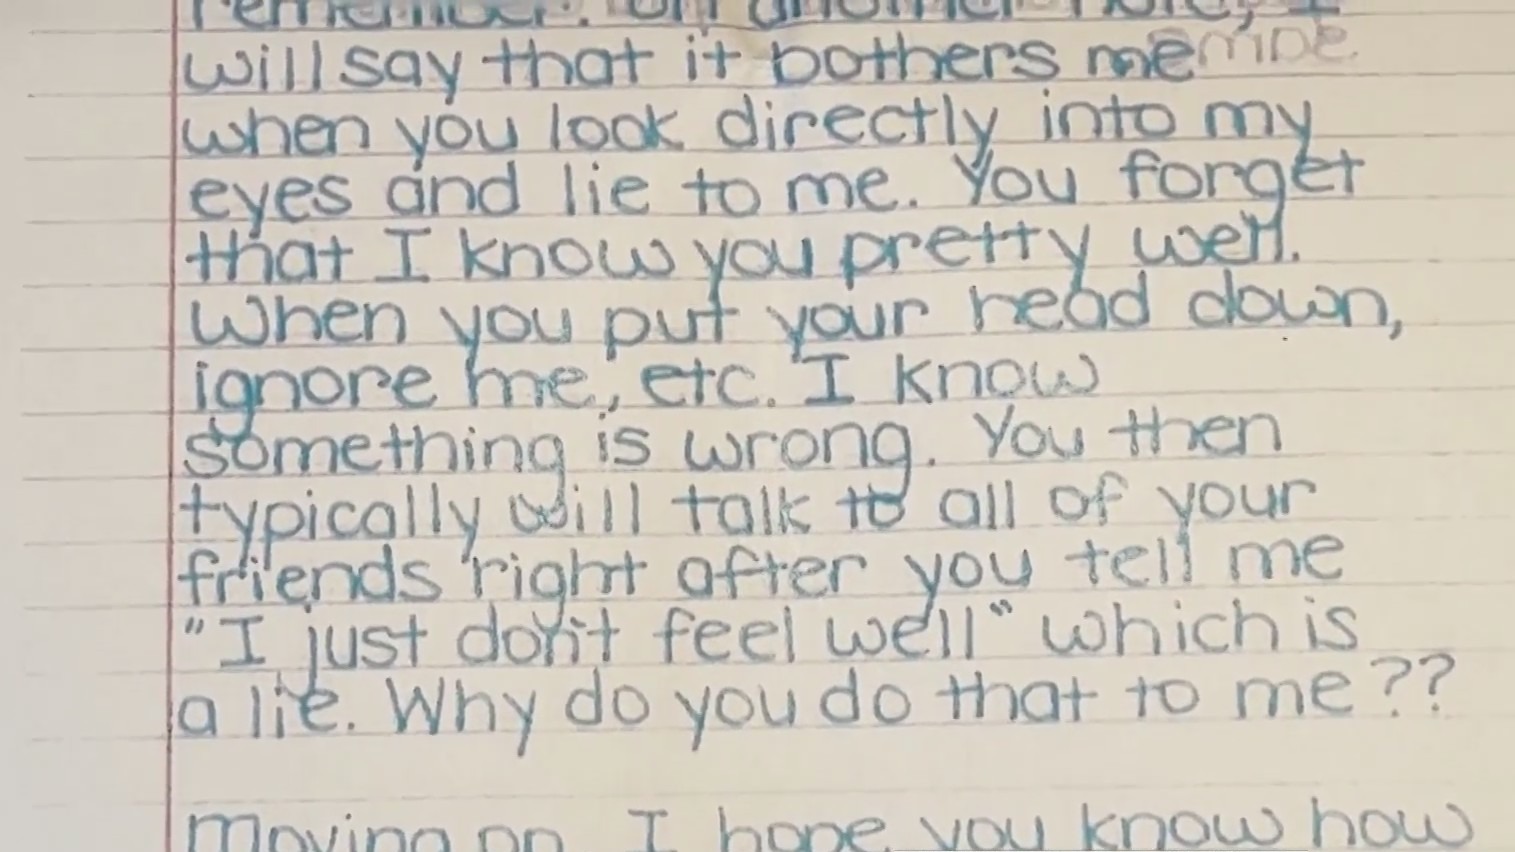 remember. On another note, I
will say that it bothers me
when you look directly into my
eyes and lie to me. You forget
that I know you pretty well.
When you put your head down,
ignore me, etc. I know
something is wrong. You then
typically will talk to all of your
friends right after you tell me
"I just don't feel well" which is
a lie. Why do you do that to me??
Moving on, I hope you know how